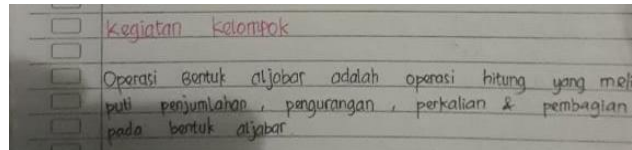 Kegiatan Kelompok
Operasi Bentuk aljabar adalah operasi hitung yang meli
puti penjumlahan, pengurangan, perkalian & pembagian
pada bentuk aljabar